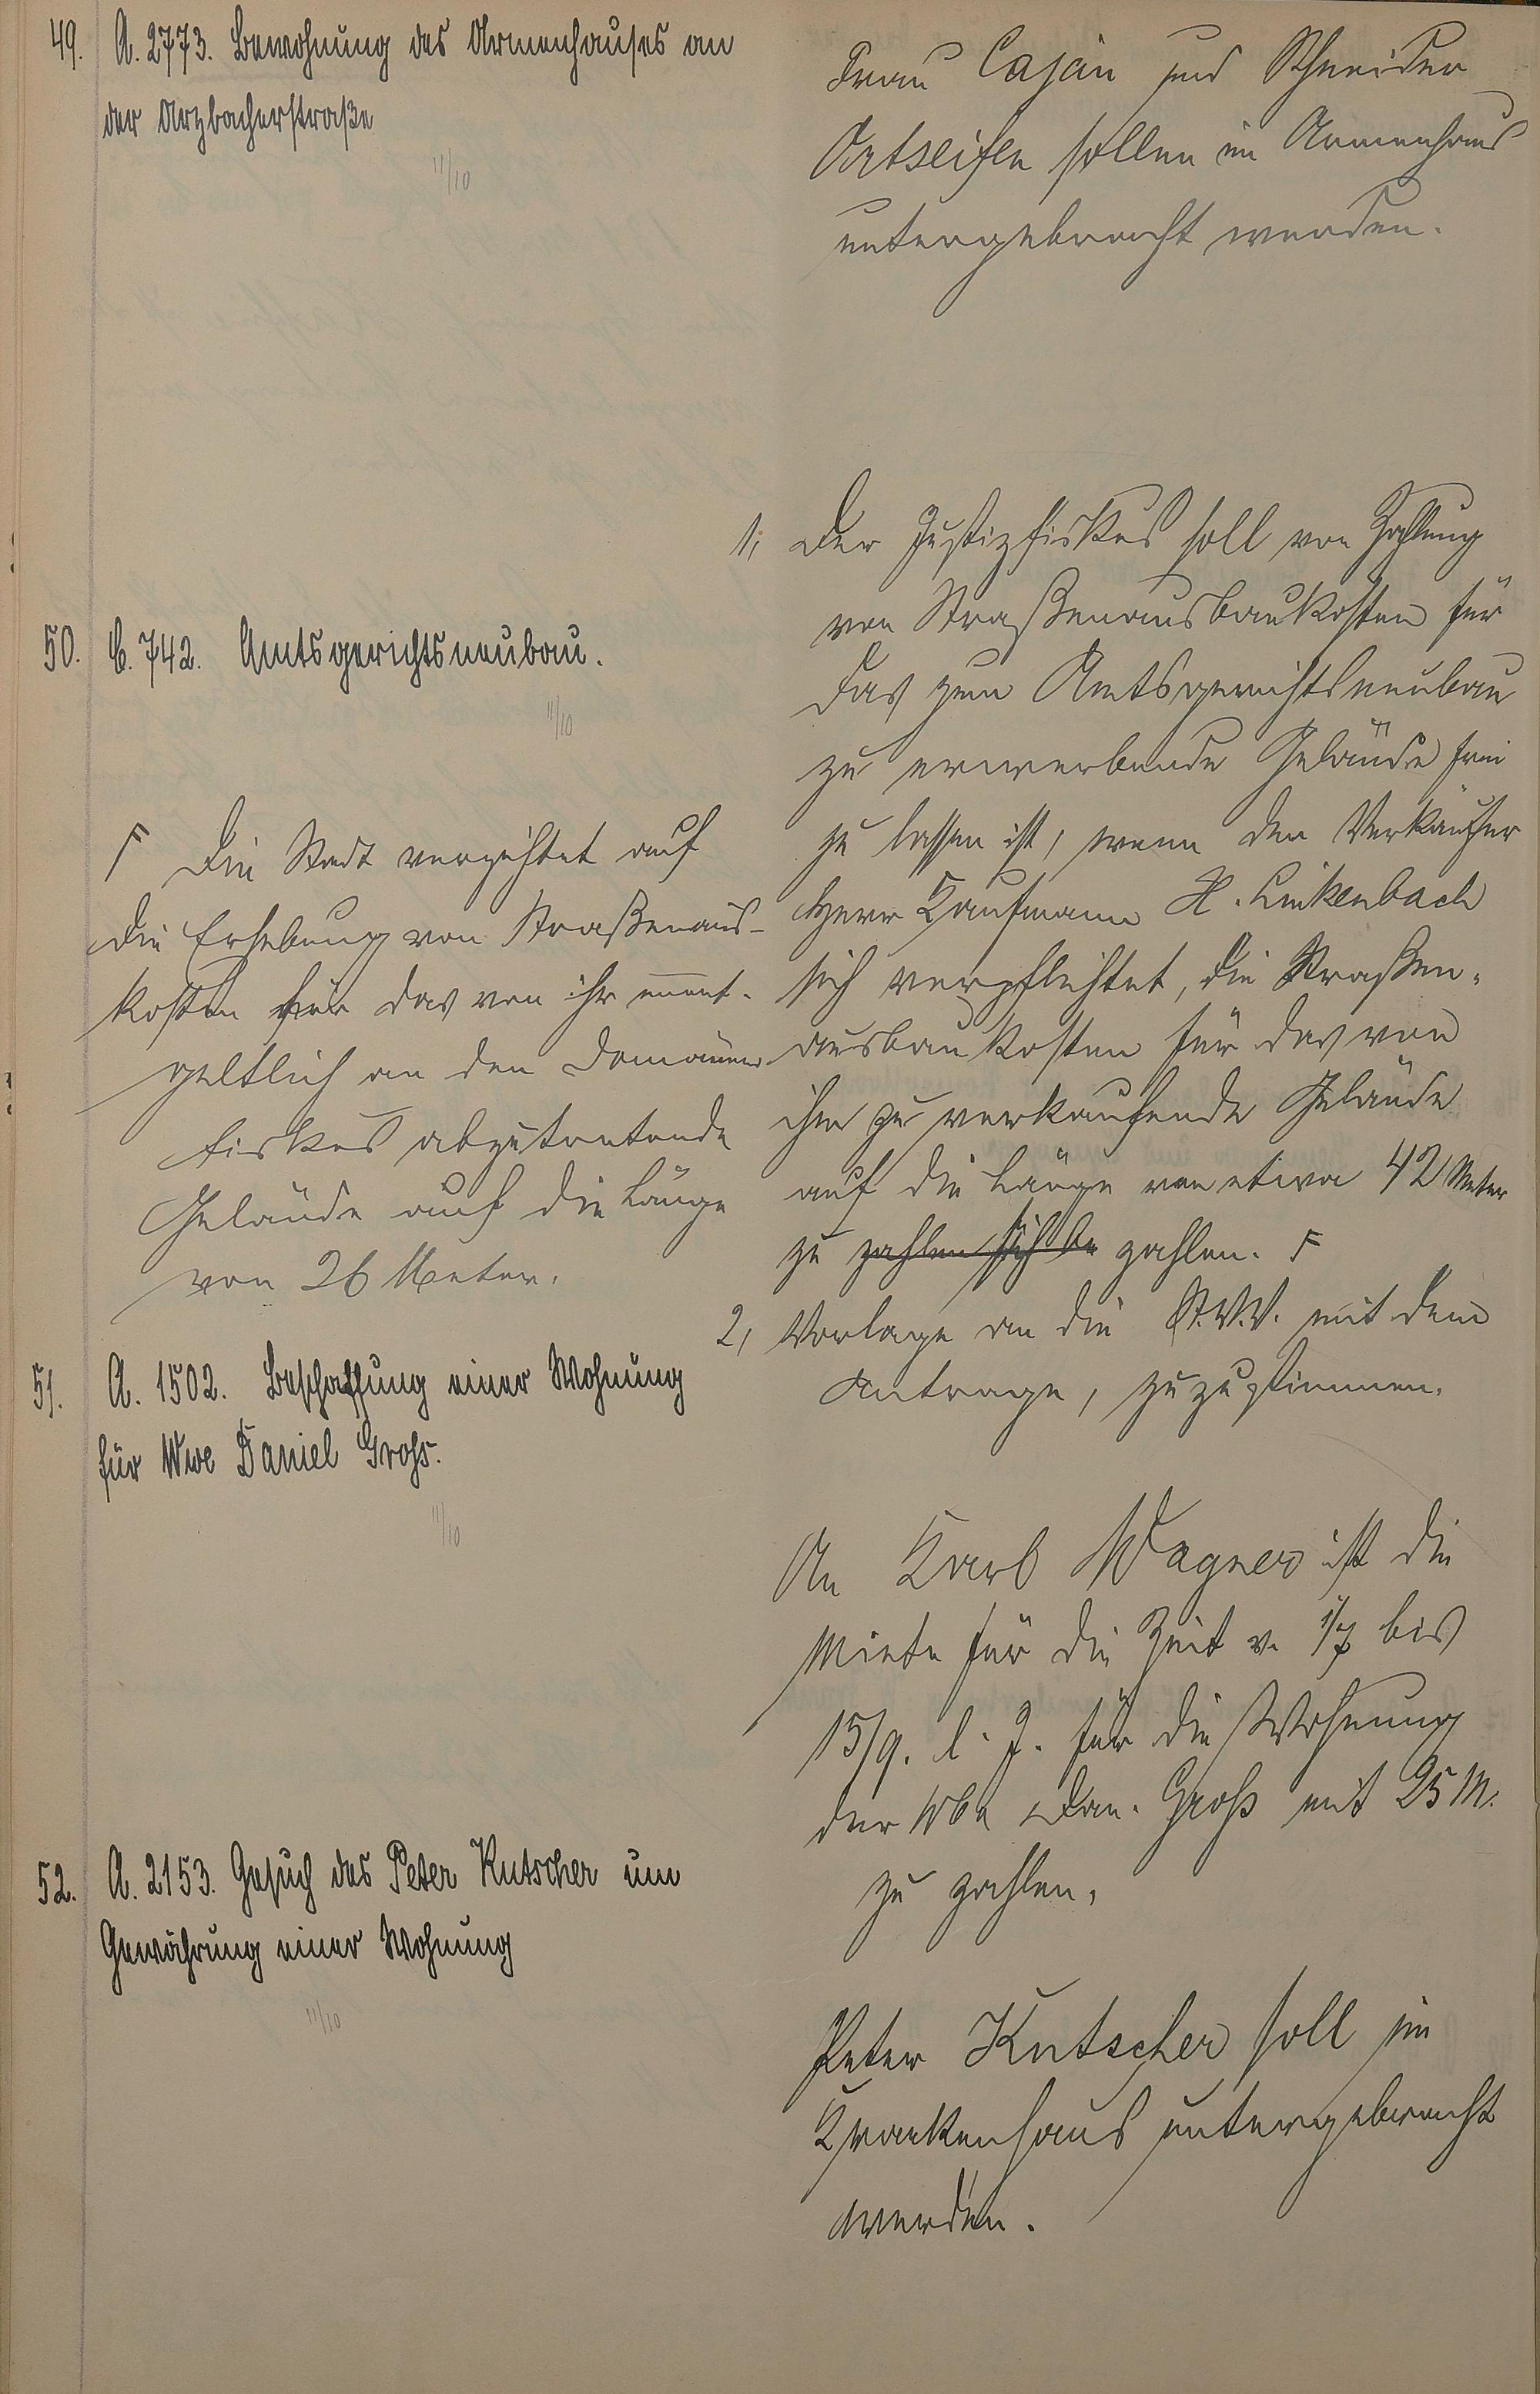 49. A. 2773. Bewohnung des Armenhauses an
der Arzbacherstraße
11/10
Frau Caján und Schneider
Ortseifen sollen im Armenhaus
untergebracht werden.
50. C. 742. Amtsgerichtsneubau.
11/10
1, Der Justizfiskus soll von Zahlung
von Straßenausbaukosten für
das zum Amtsgerichtsneubau
zu erwerbende Gelände frei
zu lassen ist, wenn der Verkäufer
Herr Kaufmann H. Linkenbach
sich verpflichtet, die Straßen-
ausbaukosten für das von
ihm zu verkaufende Gelände
auf die Länge von etwa 42 Meter
zu zahlen sich be zahlen. F
2, Vorlage an die St.V.V. mit dem
Antrage, zuzustimmen.
F Die Stadt verzichtet auf
die Erhebung von Straßenaus-
kosten für das von ihr unent-
geltlich an den Domänen
fiskus abzutretende
Gelände auf die Länge
von 26 Meter.
51. A. 1502. Beschaffung einer Wohnung
für Wwe Daniel Groß.
11/10
An Karl Wagner ist die
Miete für die Zeit v. 1/7 bis
15/9. l. J. für die Wohnung
der Wwe Dan. Groß mit 25 M.
zu zahlen.
52. A. 2153. Gesuch des Peter Kutscher um
Gewährung einer Wohnung
11/10
Peter Kutscher soll im
Krankenhaus untergebracht
werden.